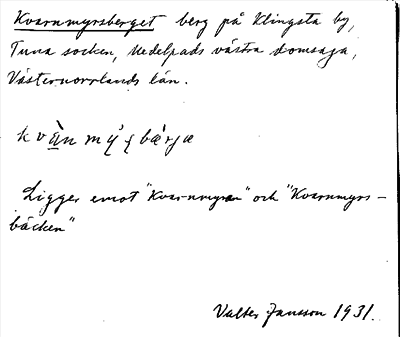 Kvarnmyrsberget berg på Klingsta by,
Tuna socken, Medelpads västra domsaga,
Västernorrlands län.
kvàn mý ʂ bærja
Ligger emot "Kvarnmyran" och "Kvarnmyrs-
bäcken"
Valter Jansson 1931.